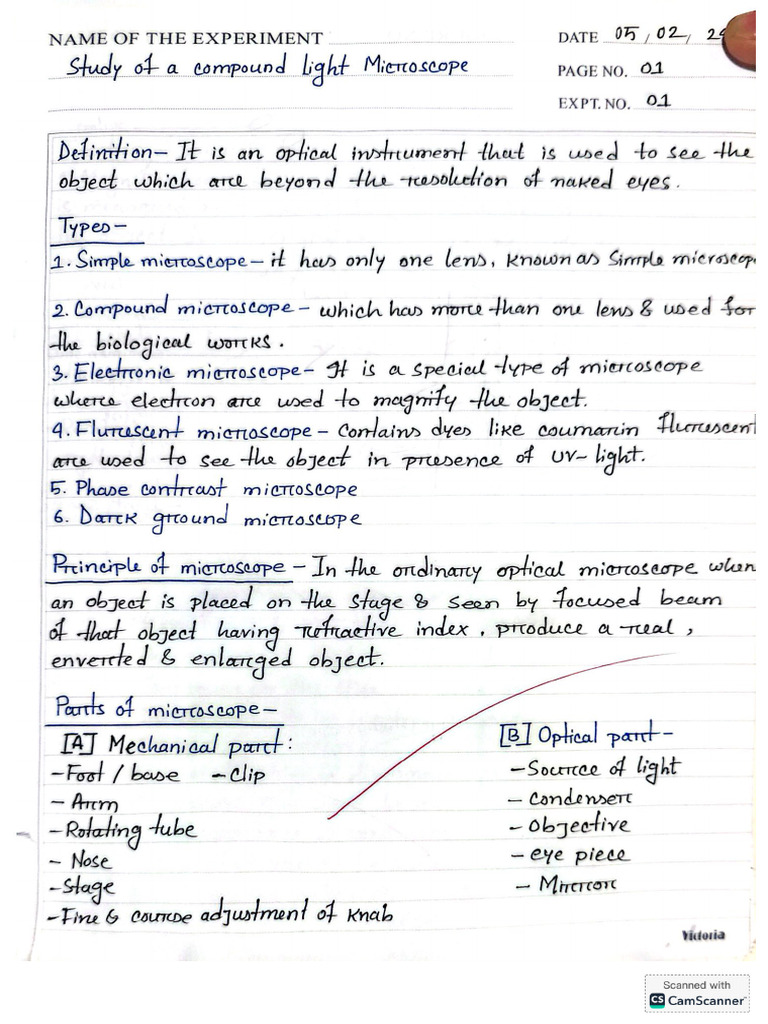 NAME OF THE EXPERIMENT
DATE 05/02/
Study of a compound light Microscope
PAGE NO. 01
EXPT. NO. 01
Definition— It is an optical instrument that is used to see the
object which are beyond the resolution of naked eyes.
Types—
1. Simple microscope— it has only one lens, known as Simple microscope
2. Compound microscope— which has more than one lens & used for
the biological works.
3. Electronic microscope— It is a special type of microscope
where electron are used to magnify the object.
4. Flurescent microscope— Contains dyes like coumarin flurescent
are used to see the object in presence of UV-light.
5. Phase contrast microscope
6. Dark ground microscope
Principle of microscope— In the ordinary optical microscope when
an object is placed on the stage & seen by focused beam
of that object having refractive index, produce a real,
enverted & enlarged object.
Parts of microscope—
[A] Mechanical part:
-Foot / base -Clip
-Arm
-Rotating tube
- Nose
-Stage
-Fine & course adjustment of knab
[B] Optical part-
-Source of light
- Condenser
- Objective
- eye piece
- Mirror
Victoria
Scanned with
CS CamScanner